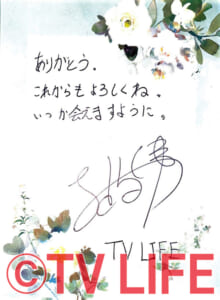 ありがとう.
これからもよろしくね。
いつか会えますように。
TV LIFE
©TV LIFE